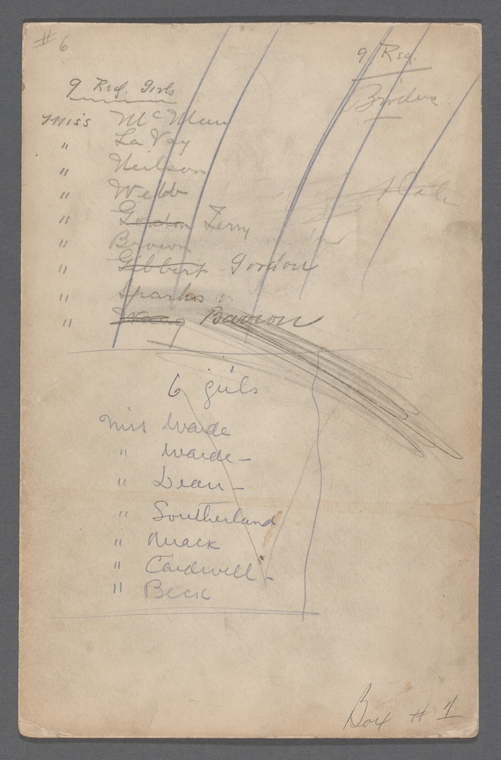 # 6
9 Reg.
9 Reg. Girls
Miss
" La Vay
" Neilson
" Webb
" Gordon Terry
" Brown
" Gibbert Gordon
" Sparks
" Barron
6 girls
Miss Warde
" Warde -
" Dean -
" Southerland
" Mack
" Cardwell -
" Beck
Box # 1